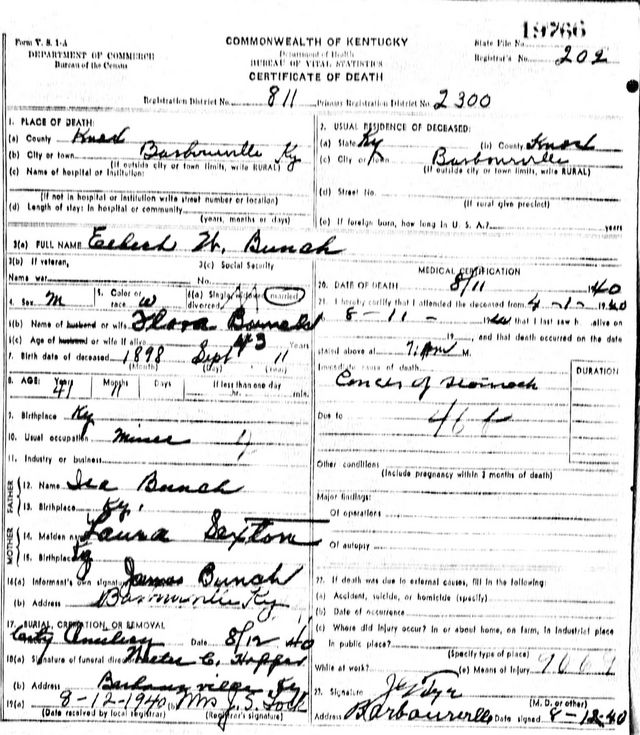 19766
Form V. S. 1-A
COMMONWEALTH OF KENTUCKY
State File No.
DEPARTMENT OF COMMERCE
Department of Health
Bureau of the Census
BUREAU OF VITAL STATISTICS
Registrar's No. 202
CERTIFICATE OF DEATH
Registration District No. 811 Primary Registration District No. 2300
1. PLACE OF DEATH:
(a) County Knox
(b) City or town Barbourville Ky
(If outside city or town limits, write RURAL)
(c) Name of hospital or Institution:
(If not in hospital or institution write street number or location)
(d) Length of stay: In hospital or community
(years, months or days)
2. USUAL RESIDENCE OF DECEASED:
(a) State Ky (b) County Knox
(c) City or town Barbourville
(If outside city or town limits, write RURAL)
(d) Street No.
(If rural give precinct)
(e) If foreign born, how long in U. S. A.? years
3(a) FULL NAME W. Bunch
3(b) If veteran, 3(c) Social Security
Name war No.
4. Sex M 5. Color or race w 6(a) Single, widowed, married, divorced
6(b) Name of husband or wife Flora
6(c) Age of husband or wife if alive 43 Years
7. Birth date of deceased 1898 Sept 11
(Month) (Day) (Year)
8. AGE: Years 41 Months 11 Days If less than one day
hr. min.
9. Birthplace Ky
10. Usual occupation Miner
11. Industry or business
FATHER
12. Name Bunch
13. Birthplace Ky.
MOTHER
14. Maiden name Laura Sexton
15. Birthplace Ky
16(a) Informant's own signature James Bunch
(b) Address Barbourville Ky
17. BURIAL, CREMATION, OR REMOVAL
City Cemetery Date 8/12 40
18(a) Signature of funeral director C. Hopper
(b) Address Barbourville Ky
19(a) 8-12-1940 (b) Mrs J. S. Lock
(Date received by local registrar) (Registrar's signature)
MEDICAL CERTIFICATION
20. DATE OF DEATH 8/11 1940
21. I hereby certify that I attended the deceased from 4-1-1940
8-11-1940 that I last saw h alive on
19 , and that death occurred on the date
stated above at 7:AM M.
Immediate cause of death
DURATION
Cancer of stomach
Due to 46 b
Other conditions
(Include pregnancy within 3 months of death)
Major findings:
Of operations
Of autopsy
22. If death was due to external causes, fill in the following:
(a) Accident, suicide, or homicide (specify)
(b) Date of occurrence
(c) Where did injury occur? In or about home, on farm, in industrial place
In public place?
(Specify type of place)
While at work? (e) Means of Injury
23. Signature
(M. D. or other)
Address Barbourville Date signed 8-12-40